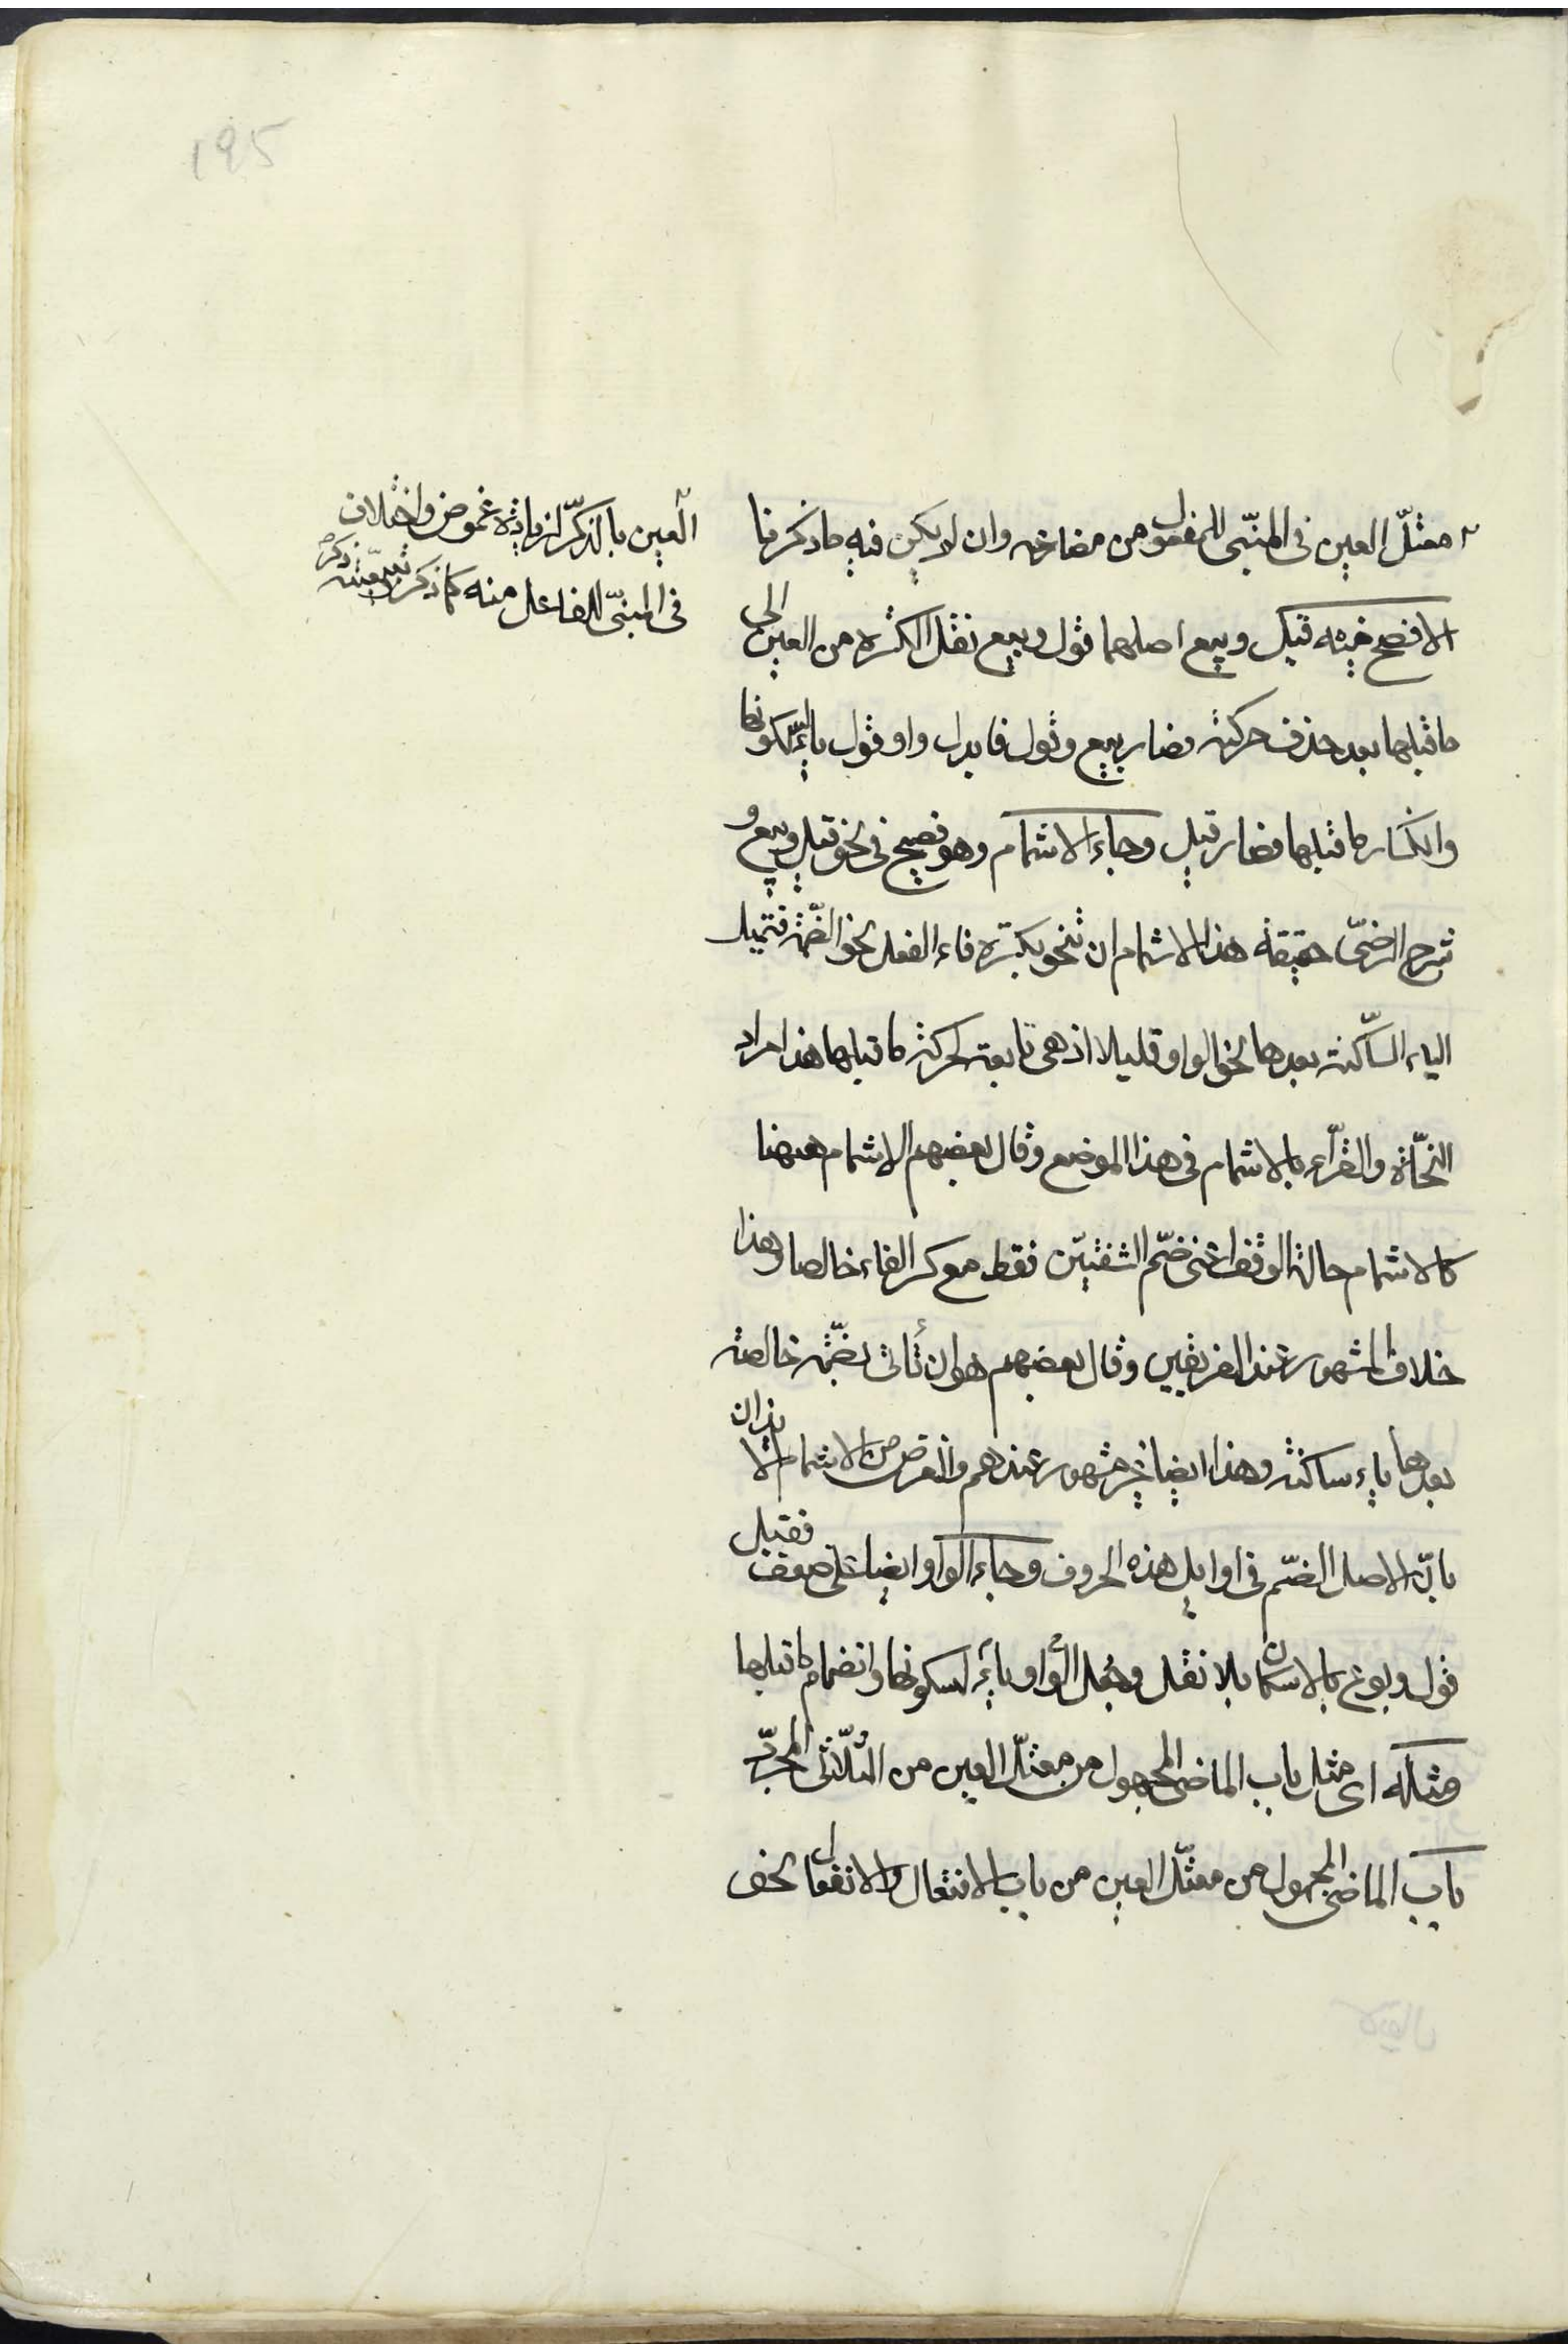 195
معتلّ العين فى المبنىّ للمفعول من مضارعه وان لا يكن فيه ما ذكرنا
الافصح فيه قيل وبيع اصلهما قول وبيع نقل الكسرة من العين الى
ما قبلها بعد حذف حركته فصار بيع وقول فابدل واو قول ياء لسكونها
وانكسار ما قبلها فصار قيل وجاء الاشمام وهو فصيح فى نحو قيل وبيع و
شرح الرضىّ حقيقة هذا الاشمام ان تنحو بكسرة فاء الفعل نحو الضّمّة فتميل
الياء السّاكنة بعدها نحو الواو قليلا اذ هى تابعة لحركة ما قبلها هذا مراد
النّحاة والقرّاء بالاشمام فى هذا الموضع وقال بعضهم الاشمام ههنا
كالاشمام حالة الوقف اعنى ضمّ الشفتين فقط مع كسر الفاء خالصا وهذا
خلاف المشهور عند الفريقين وقال بعضهم هو ان تأتى بضمّة خالصة
بعدها ياء ساكنة وهذا ايضا غير مشهور عندهم والغرض من الاشمام الايذان
بانّ الاصل الضّم فى اوايل هذه الحروف وجاء الواو ايضا على ضعف فقيل
قول وبوع بالاسكان بلا نقل وجعل الواو ياء لسكونها وانضمام ما قبلها
ومثله اى مثل باب الماضى المجهول من معتلّ العين من الثّلاثى المجرّد
باب الماضى المجهول من معتلّ العين من باب الافتعال والانفعال نحو
العين بالذكر لزيادة غموض واختلاف
فى المبنىّ للفاعل منه كما ذكر